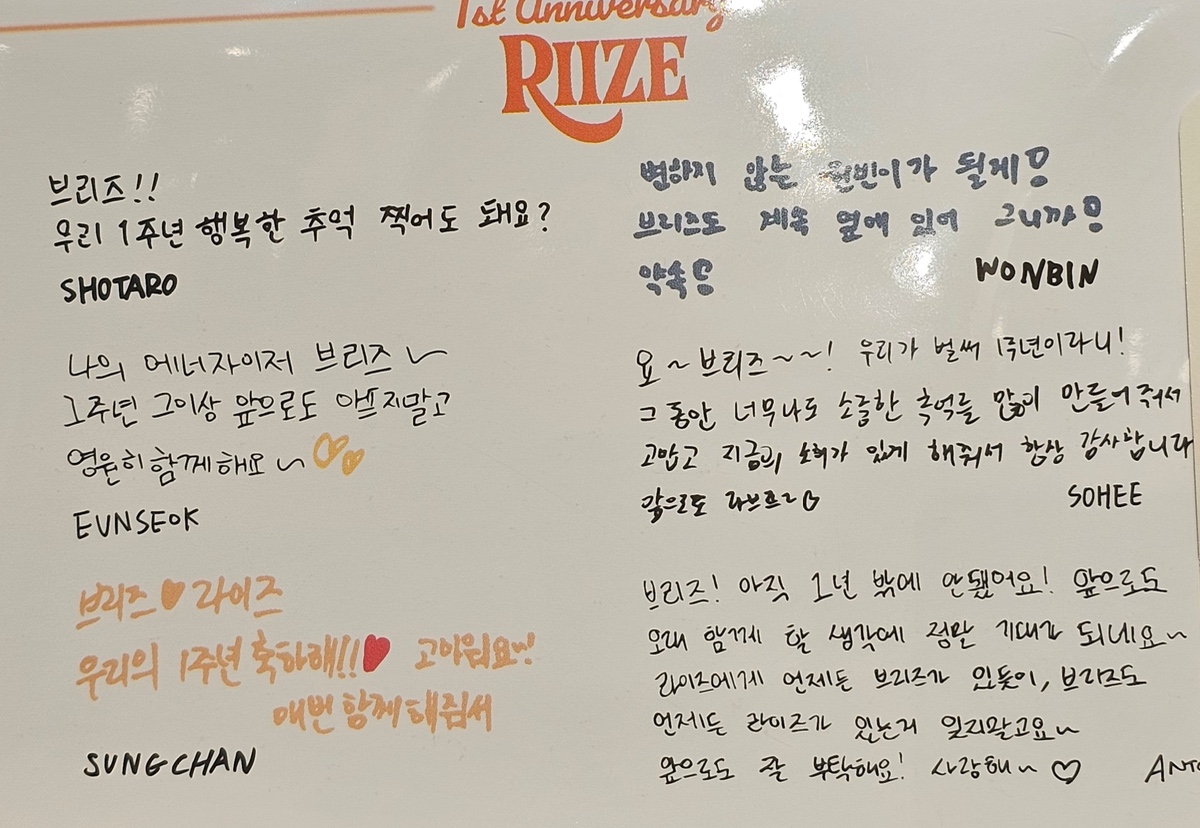 1st Anniversary
RIIZE
브리즈!!
우리 1주년 행복한 추억 찍어도 돼요?
SHOTARO
나의 에너자이저 브리즈~
1주년 그이상 앞으로도 아프지말고
영원히 함께해요~
EUNSEOK
브리즈♥라이즈
우리의 1주년 축하해!!♥ 고마워요~!
매번 함께 해줘서
SUNGCHAN
변하지 않는 원빈이가 될게!
브리즈도 계속 옆에 있어 그니까!
약속!
WONBIN
요~브리즈~~! 우리가 벌써 1주년이라니!
그동안 너무나도 소중한 추억들 많이 만들어줘서
고맙고 지금의 소희가 있게 해줘서 항상 감사합니다
앞으로도 라브뜨~♡
SOHEE
브리즈! 아직 1년 밖에 안됐어요! 앞으로도
오래 함께 할 생각에 정말 기대가 되네요~
라이즈에게 언제든 브리즈가 있듯이, 브리즈도
언제든 라이즈가 있는거 잊지말고요~
앞으로도 잘 부탁해요! 사랑해~♡
ANTO